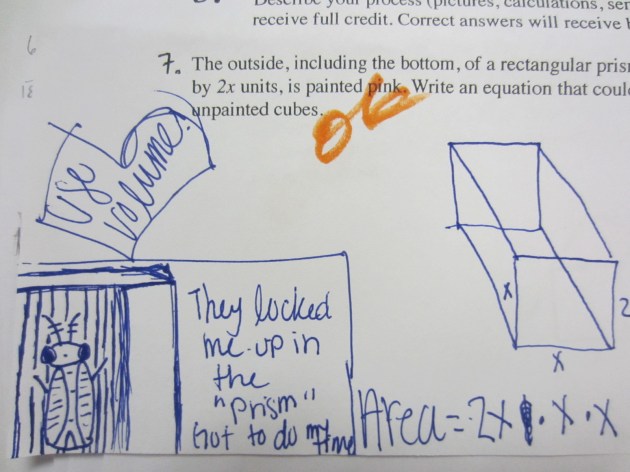 Describe your process (pictures, calculations, sen
receive full credit. Correct answers will receive
6
18
7. The outside, including the bottom, of a rectangular pris
by 2x units, is painted pink. Write an equation that coul
unpainted cubes.
Use
Volume!
They locked
me up in
the
"Prism"
Got to do my time
x
2
x
Area = 2x · x · x